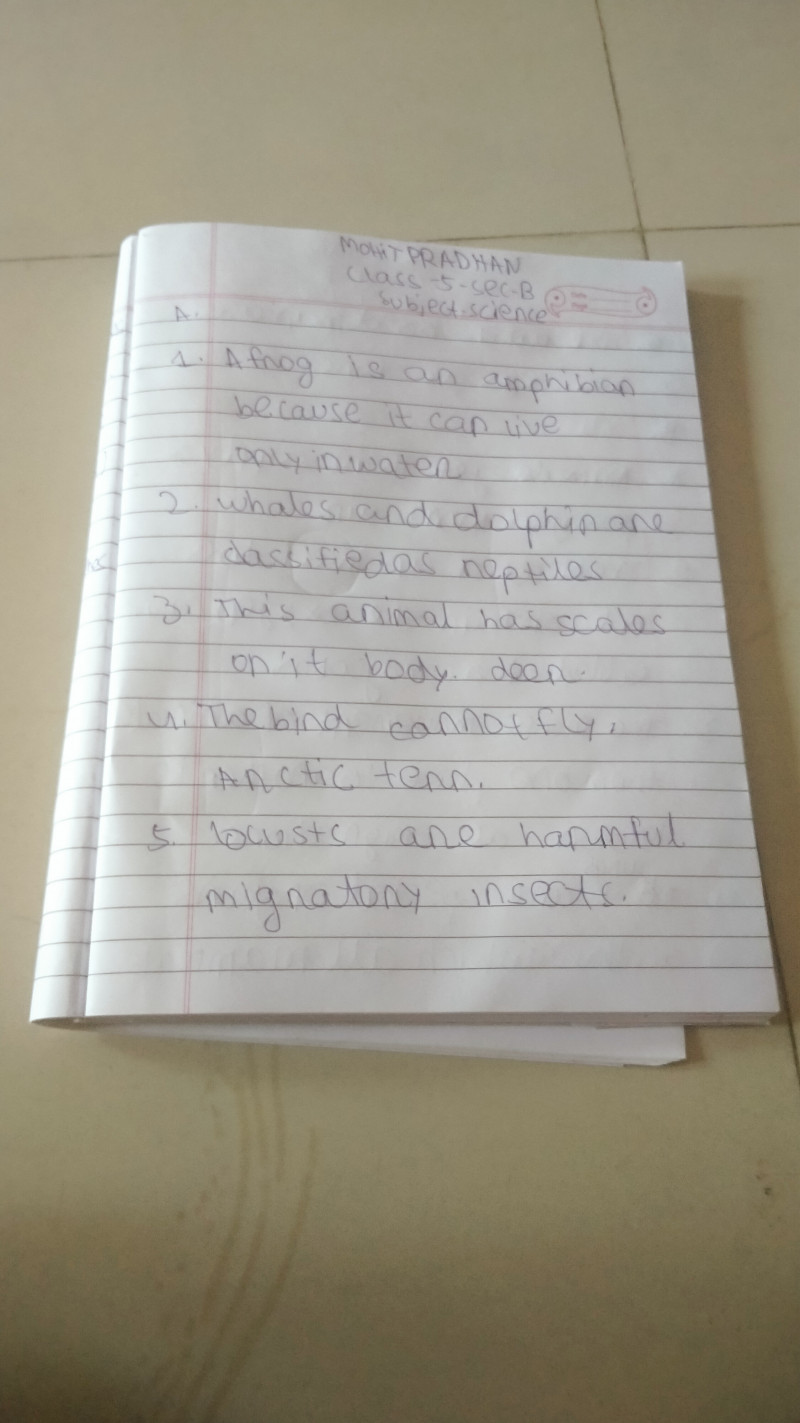 MOHIT PRADHAN
Class-5-sec-B
Subject.science
A.
1. A frog is an amphibian
because it can live
only in water
2. whales and dolphin are
classified as reptiles
3. This animal has scales
on it body. deer.
4. The bird cannot fly,
Arctic tern.
5. locusts are harmful
migratory insects.